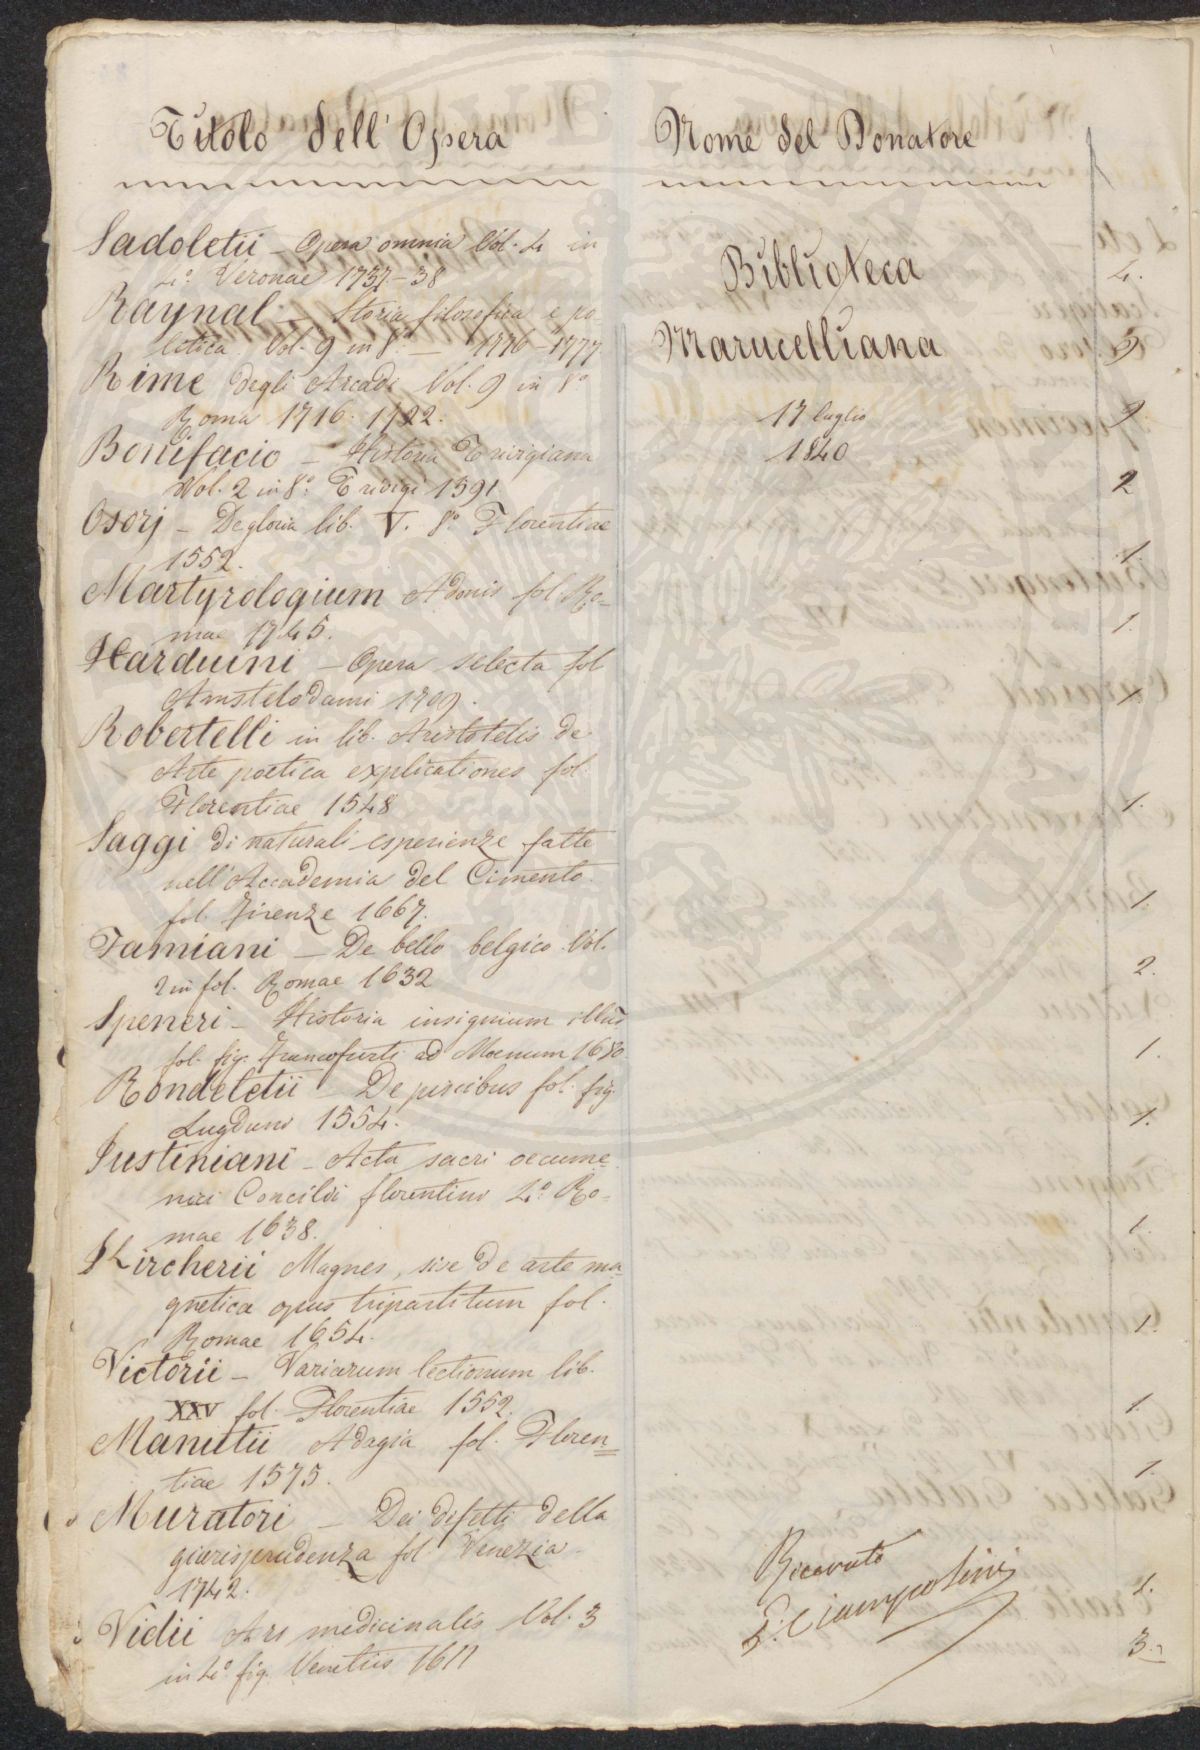 Titolo dell' Opera
Nome del Donatore
Sadoletii - Opera omnia Vol. 4 in
4.° Veronae 1737-38
Raynal - Storia filosofica e po-
litica Vol. 9 in 8.° - 1776-1777
Rime degli Arcadi Vol. 9 in 8.°
Roma 1716. 1722.
Bonifacio - Historia Trivigiana
Vol. 2 in 8.° Trivigi 1591
Osorj - De gloria lib. V. 8.° Florentiae
1552.
Martyrologium Adonis fol. Ro-
mae 1745.
Harduini - Opera selecta fol
Amstelodami 1709.
Robertelli in lib. Aristotelis de
Arte poetica explicationes fol.
Florentiae 1548
Saggi di naturali esperienze fatte
nell'Accademia del Cimento
fol. Firenze 1667.
Famiani - De bello belgico Vol.
2 in fol. Romae 1632
Speneri - Historia insignium
fol. fig. Francofurti ad Moenum 1680
Rondeletii - De piscibus fol. fig.
Lugduni 1554.
Justiniani - Acta sacri oecume-
nici Concilii florentini 4.° Ro-
mae 1638.
Kircherii Magnes, sive de arte ma-
gnetica opus tripartitum fol.
Romae 1654.
Victorii - Variarum lectionum lib.
XXV fol. Florentiae 1552.
Manutii Adagia fol. Floren=
tiae 1575.
Muratori - Dei difetti della
giurisprudenza fol Venezia
1742.
Vidii Ars medicinalis Vol. 3
in 4.° fig. Venetiis 1611
Biblioteca
Marucelliana
17 luglio
1840
Ricevuto
Ciampolini
4.
9
9
2
1.
1.
1.
1.
1.
2.
1.
1.
1.
1.
1.
1.
1.
3.